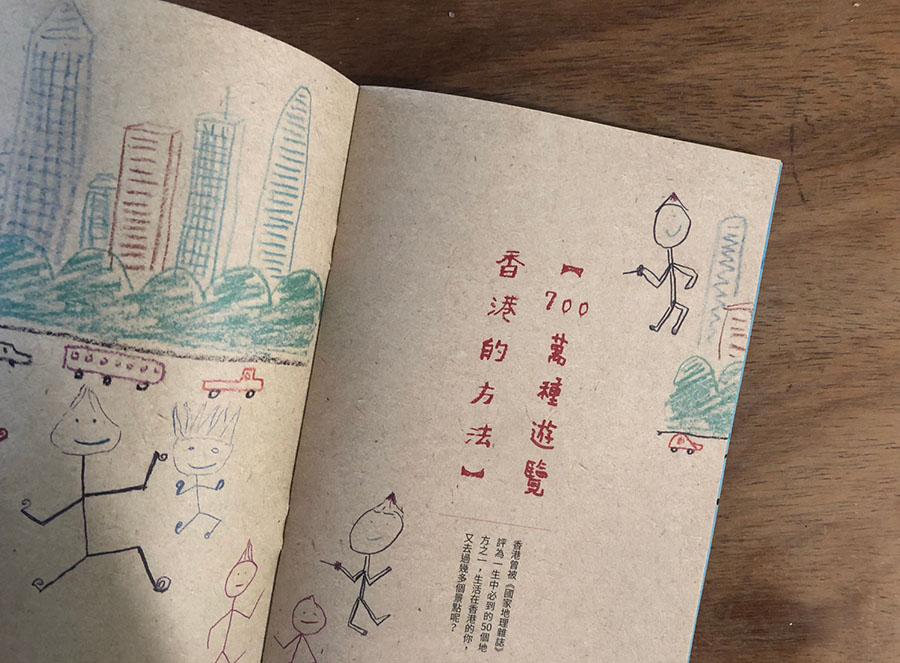 【700萬種遊覽
香港的方法】
香港曾被《國家地理雜誌》
評為一生中必到的50個地
方之一，生活在香港的你，
又去過幾多個景點呢？